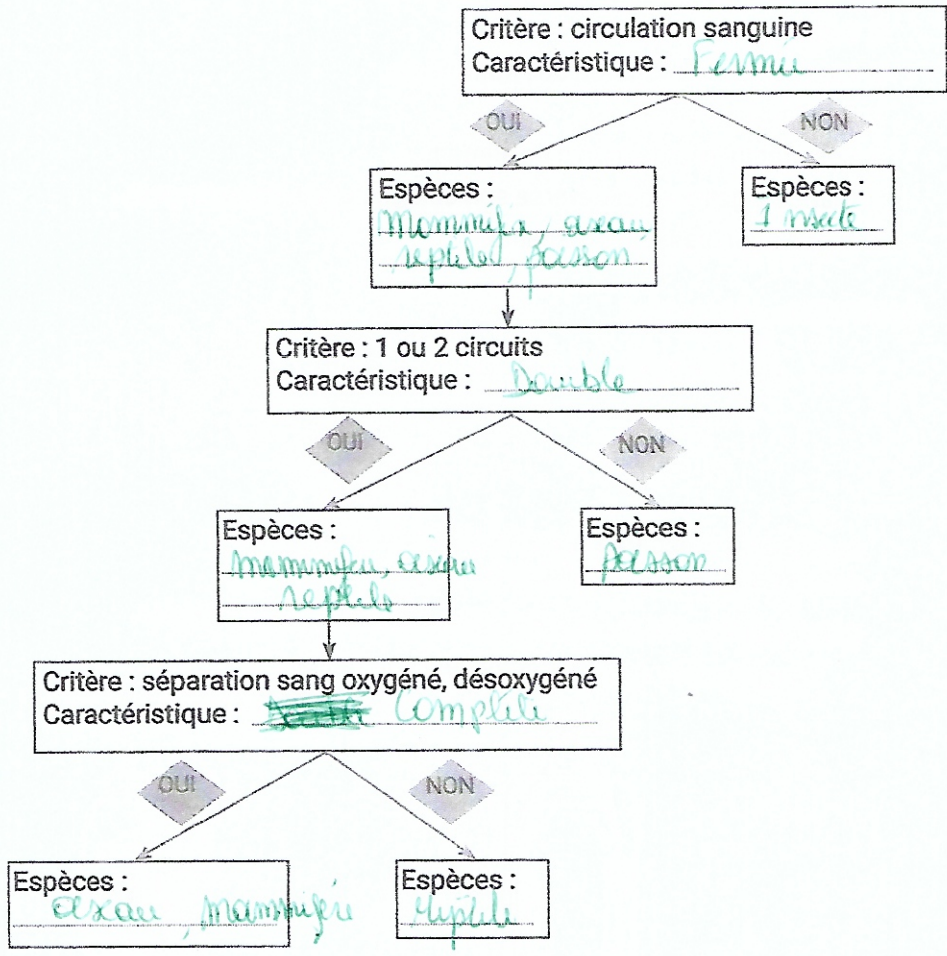 Critère : circulation sanguine
Caractéristique : Fermée
OUI
NON
Espèces :
Mammifère, oiseau
reptile, poisson
Espèces :
Insecte
Critère : 1 ou 2 circuits
Caractéristique : Double
OUI
NON
Espèces :
mammifère, oiseau
reptile
Espèces :
poisson
Critère : séparation sang oxygéné, désoxygéné
Caractéristique : Complète
OUI
NON
Espèces :
oiseau, mammifère
Espèces :
reptile